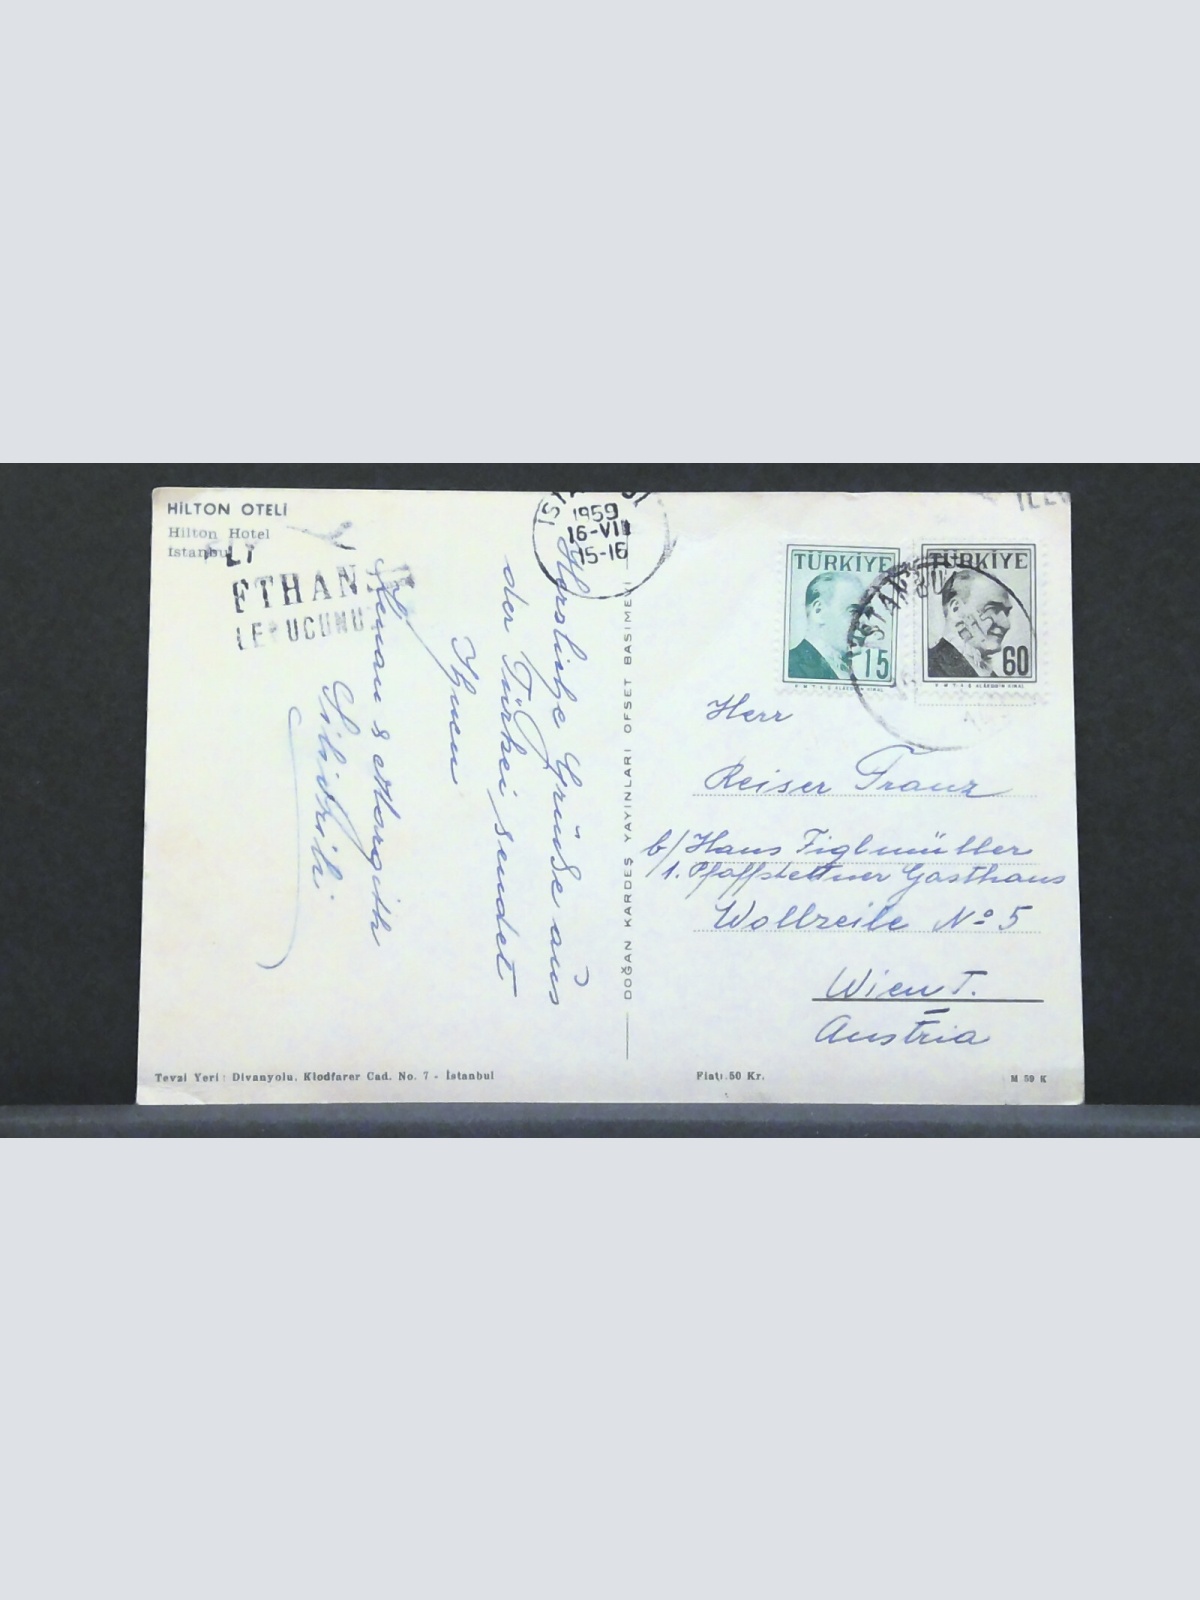 HİLTON OTELİ
Hilton Hotel
İstanbul
LT
FTHAN
LE UCUNU
1959
16-VII
15-16
Herzliche Grüße aus
der Türkei sendet
Ihnen
Kenan & Margith
DOĞAN KARDEŞ YAYINLARI OFSET BASIMEVİ
TÜRKİYE
15
TÜRKİYE
60
İSTANBUL
Herr
Reiser Franz
b/ Hans Figlmüller
1. Pfaffstettner Gasthaus
Wollzeile No 5
Wien I.
Austria
Tevzi Yeri: Divanyolu, Klodfarer Cad. No. 7 - İstanbul
Fiatı 50 Kr.
M 59 K